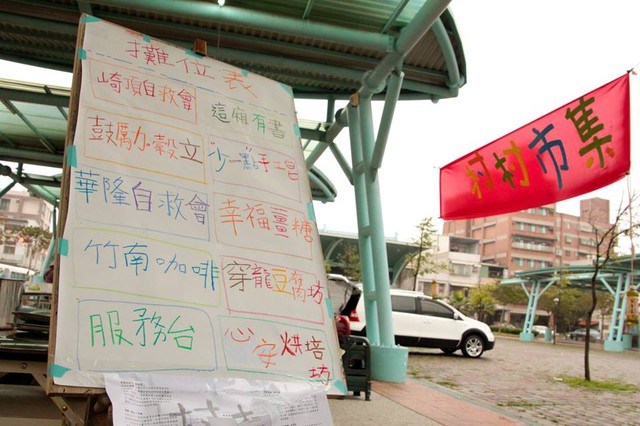 攤位表
崎頂自救會
這廂有書
鼓勵加穀立
沙一點手工皂
華隆自救會
幸福薑糖
竹南咖啡
穿龍豆腐坊
服務台
心安烘培坊
村村市集